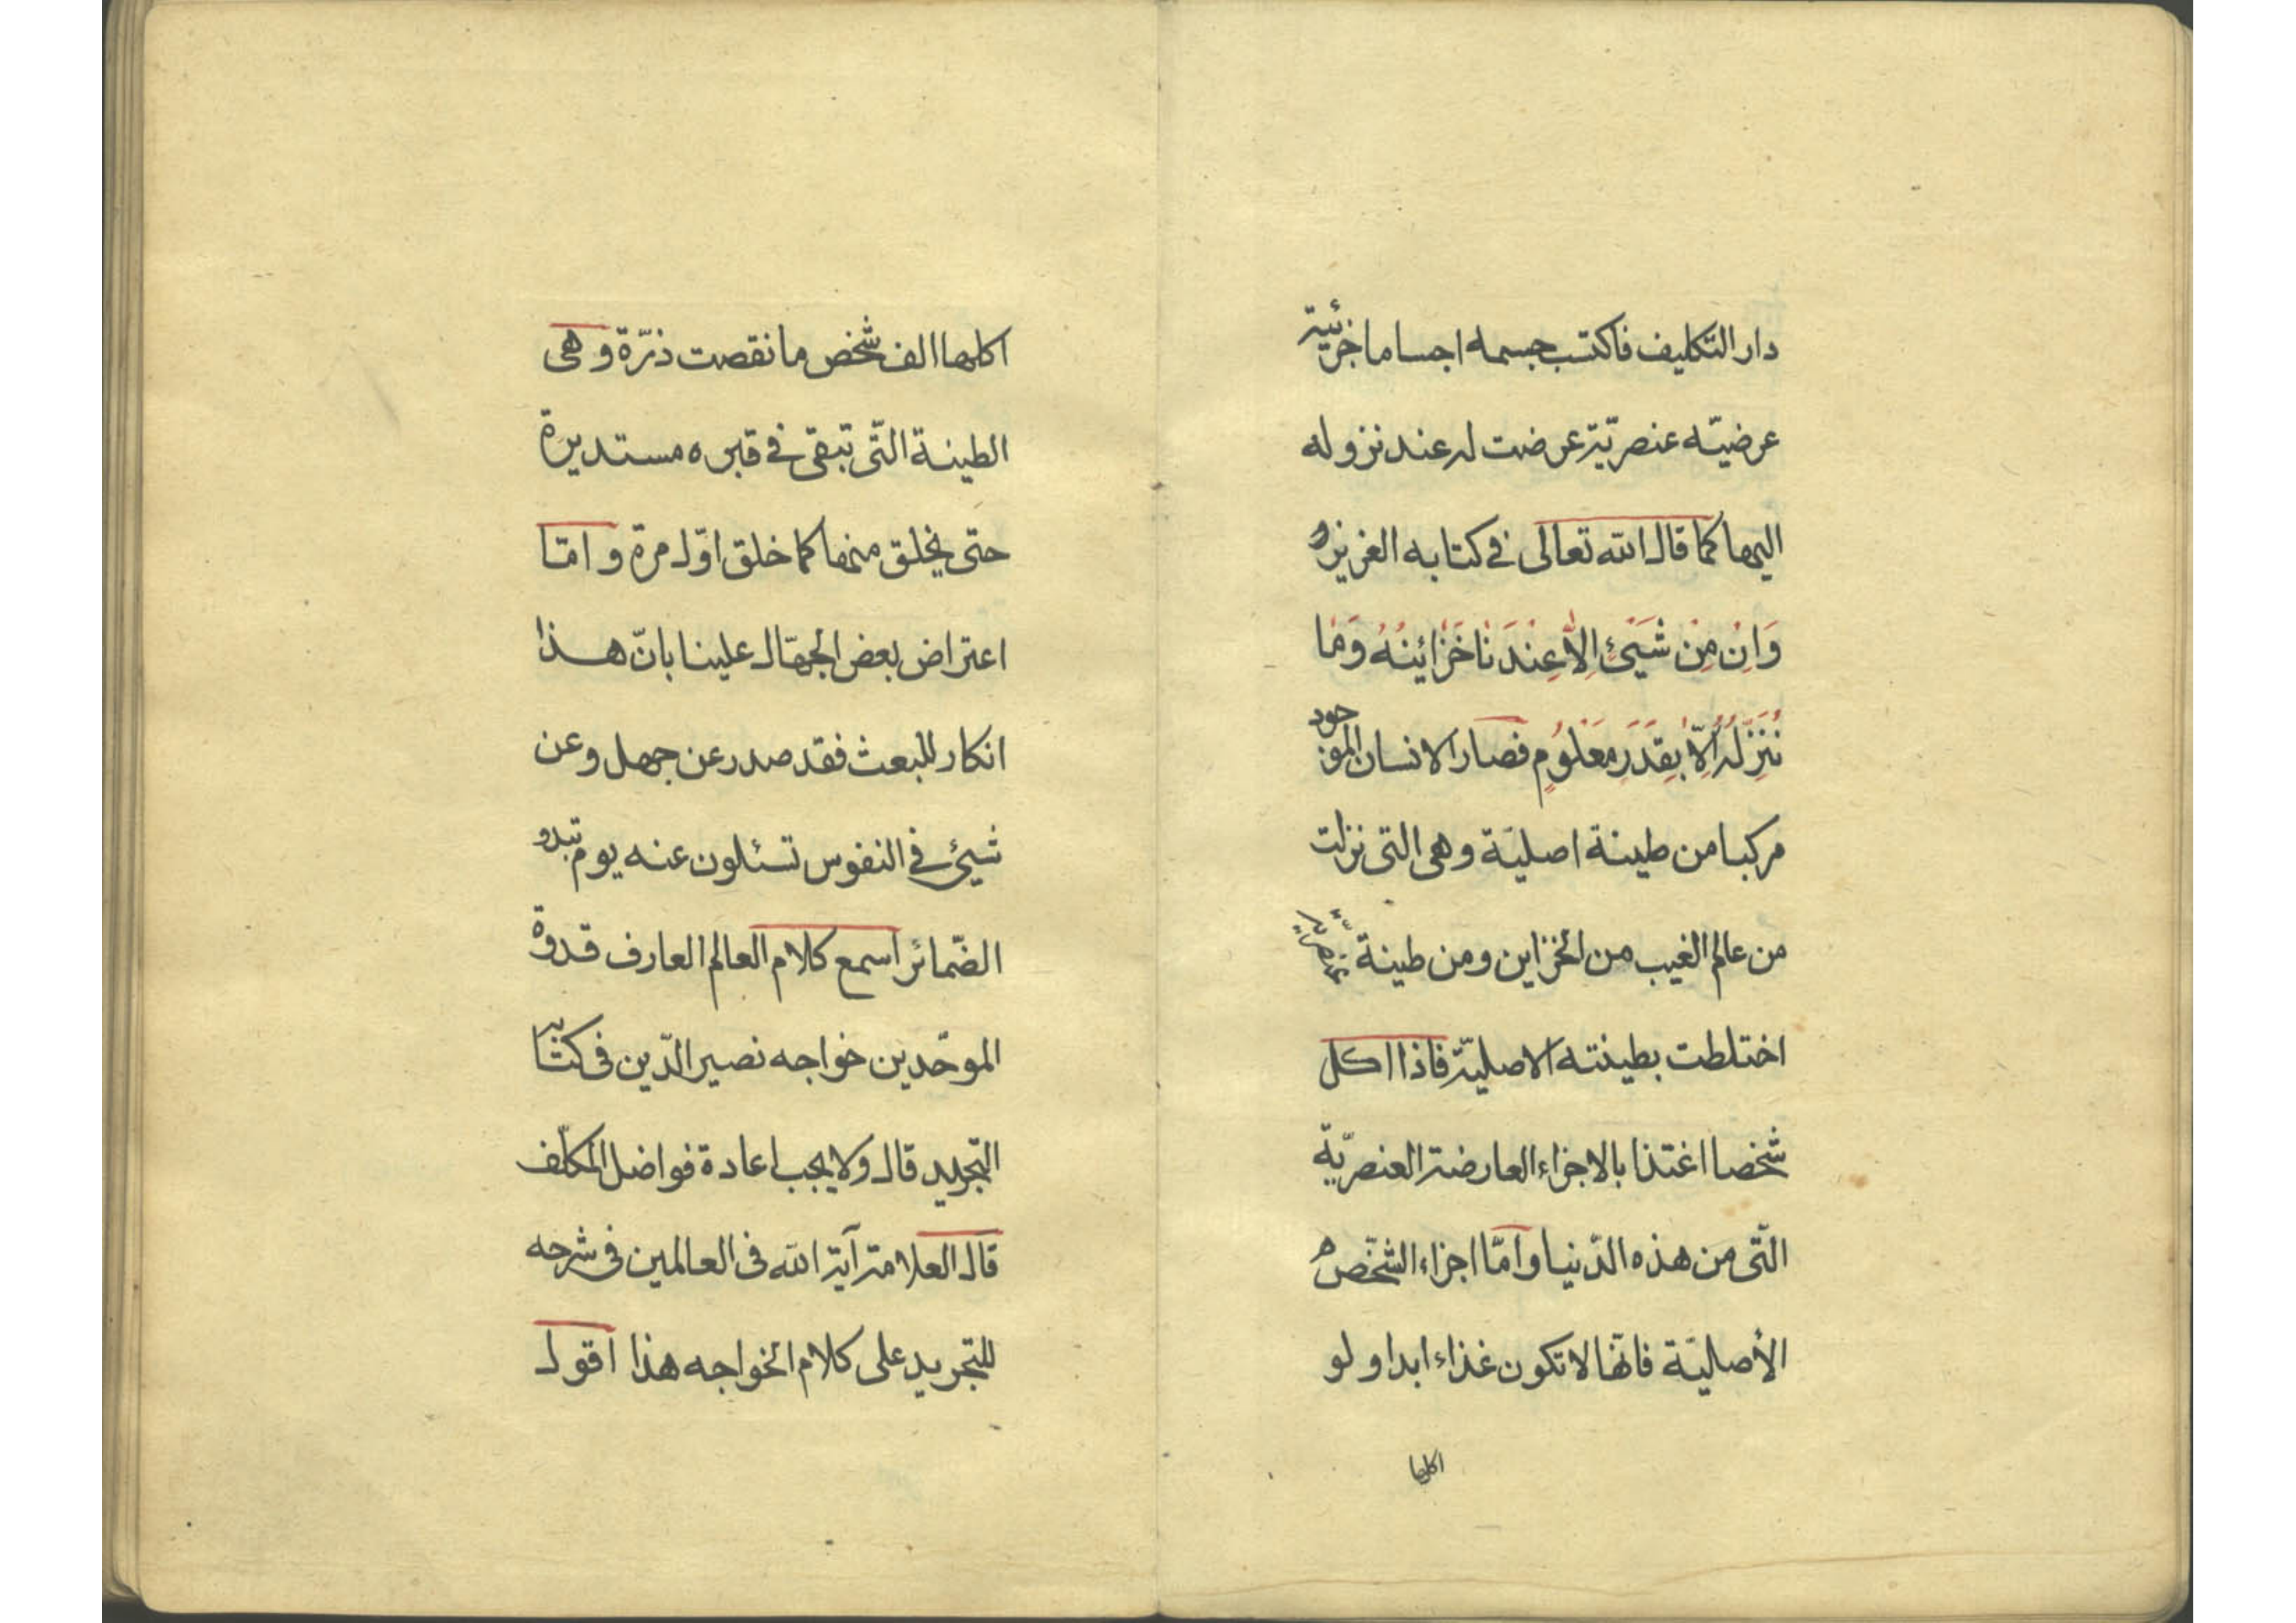 دار التكليف فاكتسب جسمه اجساما جزئية
عرضيّه عنصريّة عرضت له عند نزوله
اليها كما قال الله تعالى في كتابه العزيز
وَاِنْ مِنْ شَيْئٍ اِلاّٰ عِنْدَنٰا خَزٰائِنُهُ وَمٰا
نُنَزِّلُهُ اِلاّٰ بِقَدَرٍ مَعْلُوُمٍ فصار الانسان الموجود
مركبا من طينة اصليّة وهى التى نزلت
من عالم الغيب من الخزاين ومن طينة
اختلطت بطينته الاصليّة فاذا اكل
شخصا اغتذا بالاجزاء العارضة العنصريّة
التّى من هذه الدّنيا وامّا اجزاء الشّخص
الأصليّة فانّها لا تكون غذاء ابدا ولو
اكلها
اكلها الف شخص ما نقصت ذرّة وهى
الطينة التّى تبقى في قبره مستديرة
حتى يخلق منها كما خلق اوّل مرة وامّا
اعتراض بعض الجهّال علينا بانّ هذا
انكار للبعث فقد صدر عن جهل وعن
شيئ في النفوس تسئلون عنه يوم تبدو
الضّمائر اسمع كلام العالم العارف قدوة
الموحّدين خواجه نصير الدّين فى كتاب
التّجريد قال ولا يجب اعادة فواضل المكلّف
قال العلامة آية الله فى العالمين فى شرحه
للتجريد على كلام الخواجه هذا اقول